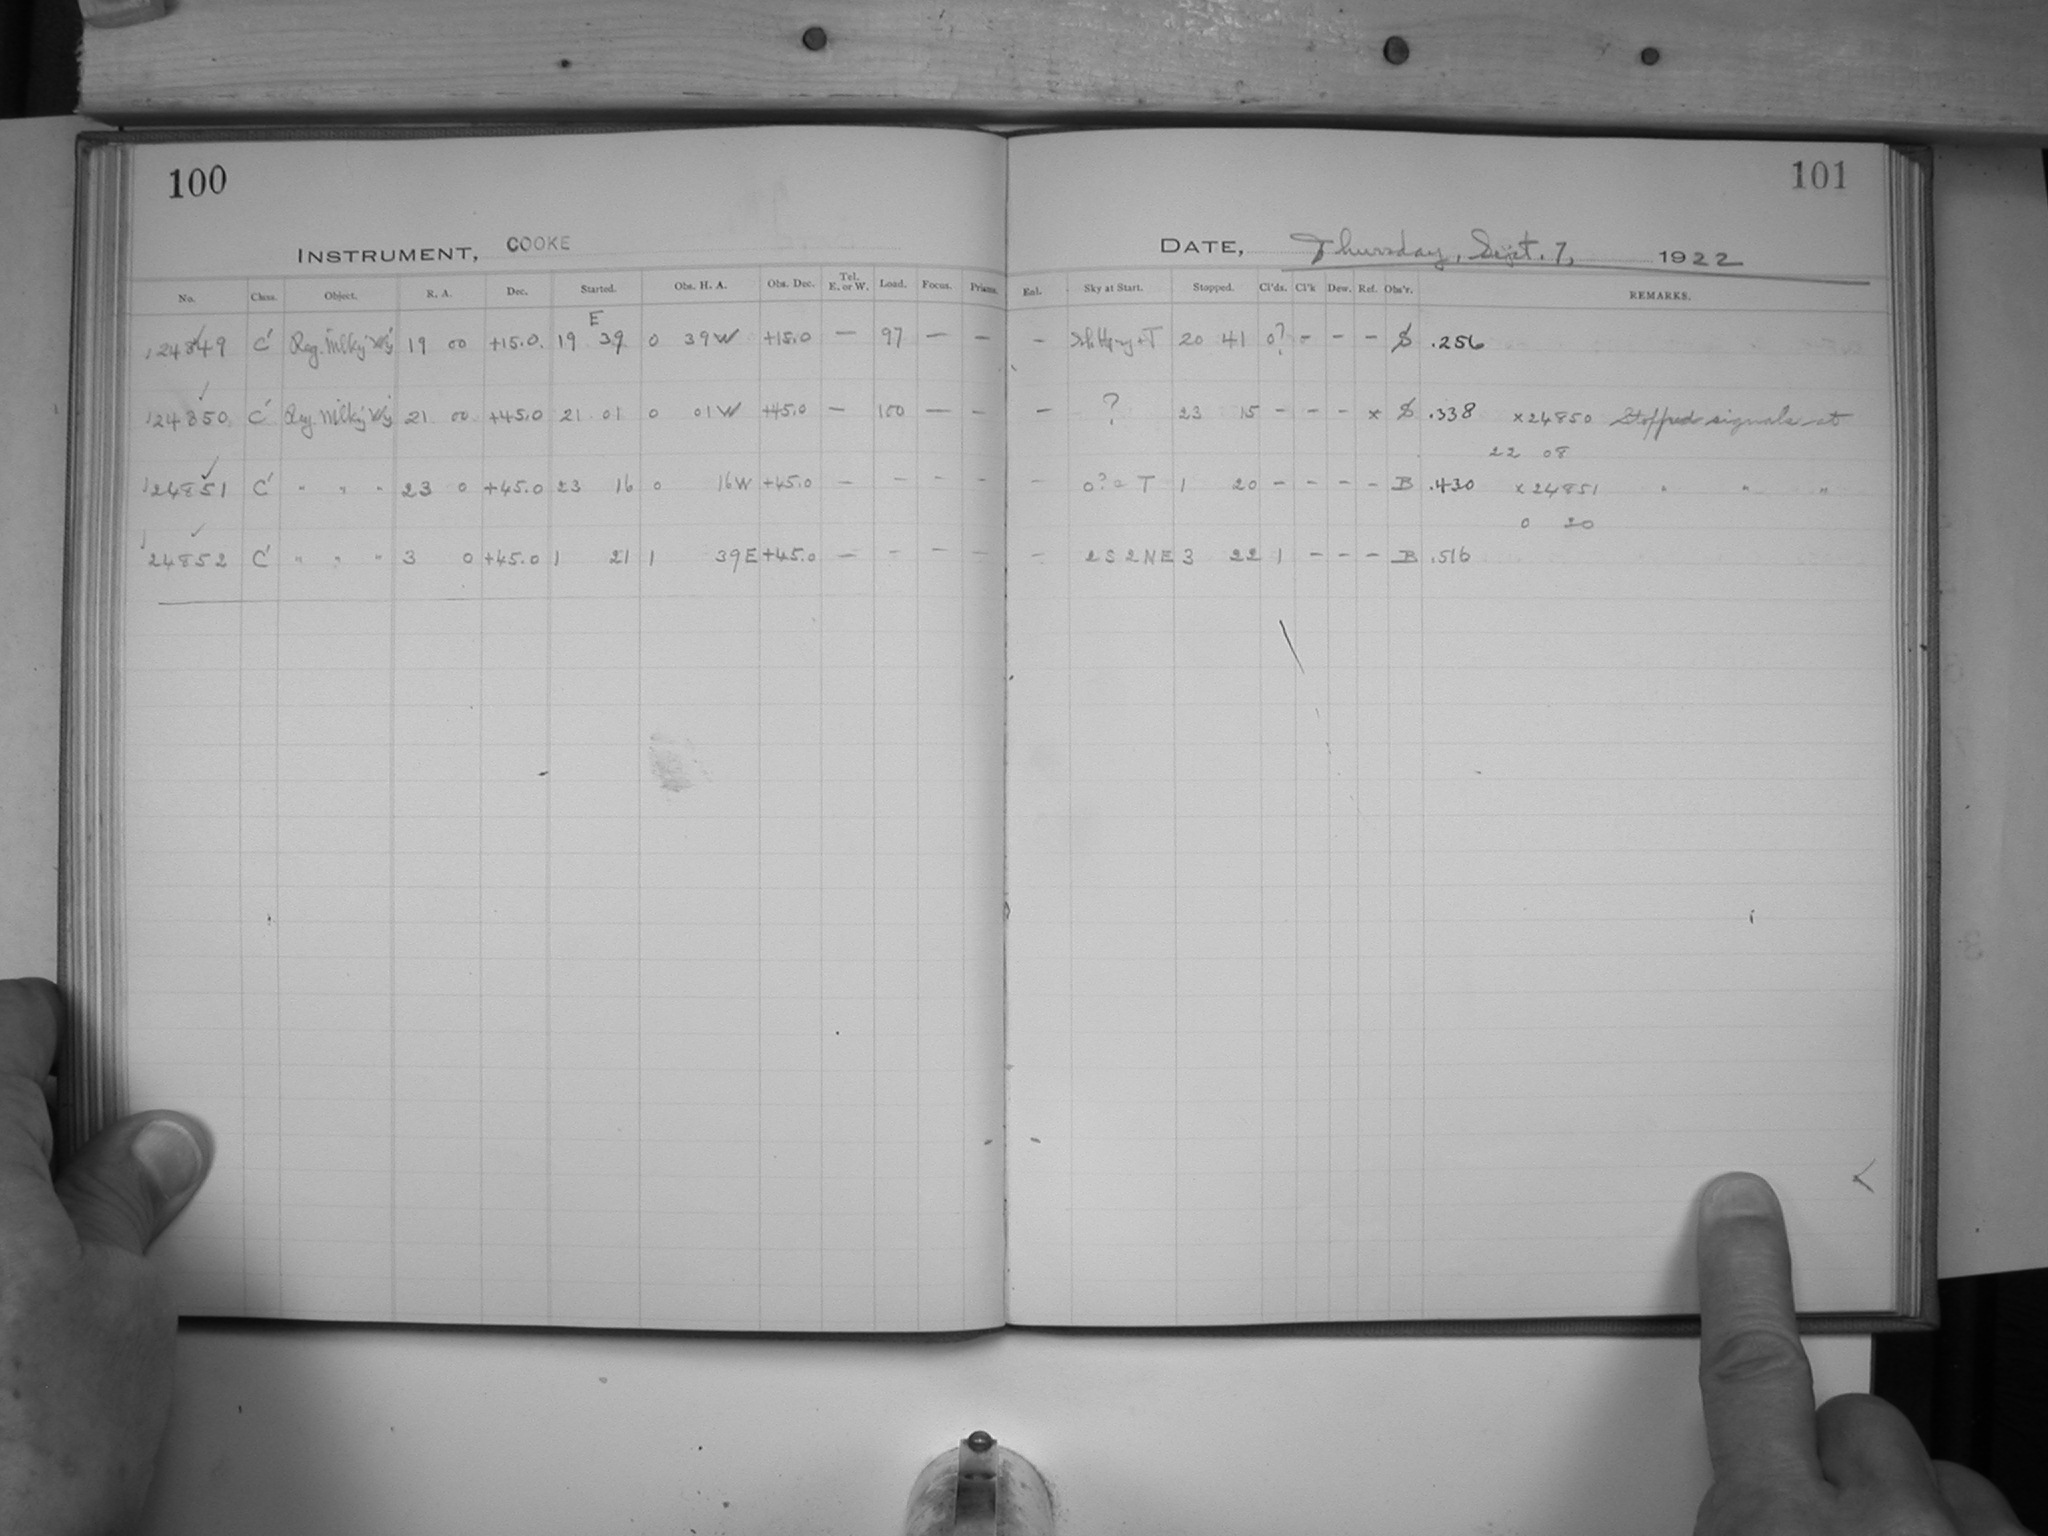 100
101
INSTRUMENT, COOKE
DATE, Thursday, Sept. 7, 1922
No. Class. Object. R. A. Dec. Started. Obs. H. A. Obs. Dec. Tel. E. or W. Load. Focus. Prisms. Enl. Sky at Start. Stopped. Cl'ds. Cl'k Dew. Ref. Obs'r. REMARKS.
E
24849 C' Reg. Milky Way 19 00 +15.0 19 39 0 39W +15.0 — 97 — — – T 20 41 0? – – – S .256
24850 C' Reg. Milky Way 21 00 +45.0 21 01 0 01W +45.0 — 100 — — — ? 23 15 – – – x S .338 x24850 Stopped signals at
22 08
24851 C' " " " 23 0 +45.0 23 16 0 16W +45.0 — – – – – 0? T 1 20 – – – – B .430 x24851 " " "
0 20
24852 C' " " " 3 0 +45.0 1 21 1 39E +45.0 — – – – – 2S 2NE 3 22 1 – – – B .516